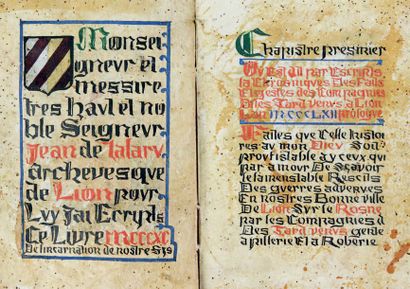 Monsei
gneur et
messire
tres havlt et no
ble Seignevr
Jean de Talarv
archevesqve
de Lion povr
Lvy Jai Ecrypt
Ce Livre mccccxc
De lincarnation de nostre Sgr
Chapistre Presmier
les Croniqves Des Faits
Et Gestes des Compaignies
Dites Tard Venvs a Lion
Lan mccclxii prologve
Faites qve Ceste histoire
Proufistable a ceux qvi
par amovr De Scavoir
Le lamentable Rescit
Des gverres advenves
En nostre Bonne ville
De Lion Svr le Rosne
Par les Compagnies D
Des Tard Venvs
a pillerie Et a Roberie